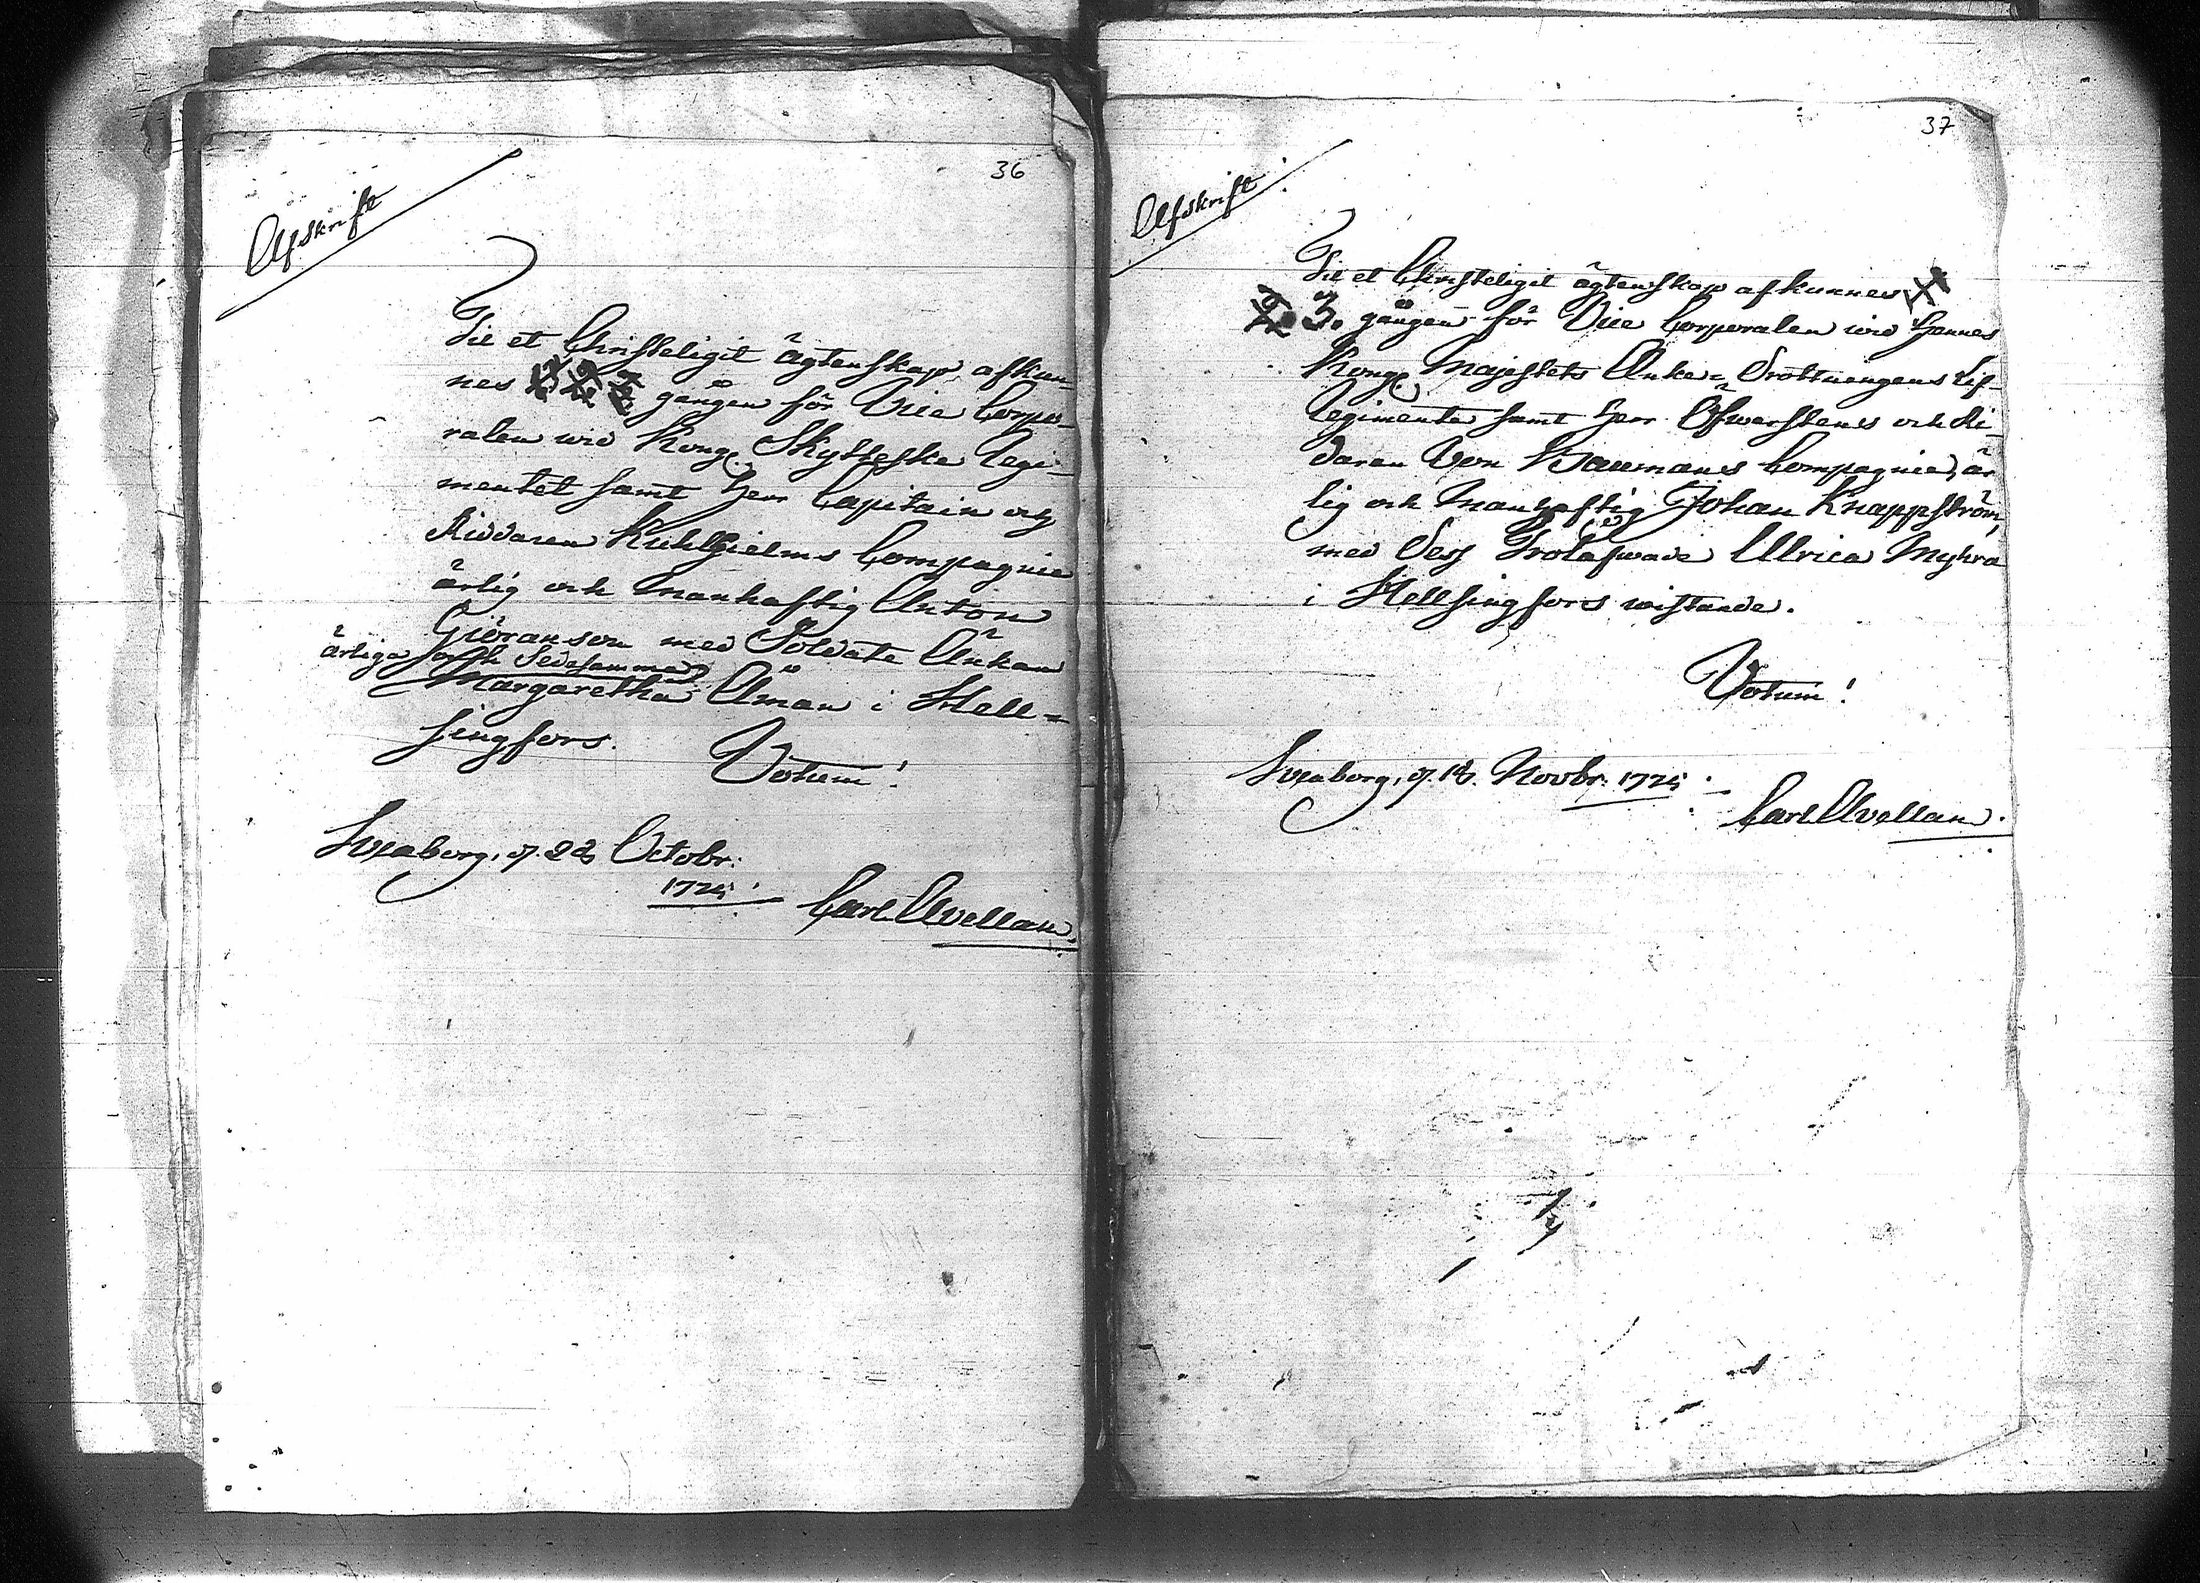 36
Afskrift
Til et Christeligit ägtenskap afkun-
nes gången för Vice Corpo-
ralen wid Kongl. Skytteske Regi-
mentet samt Herr Capitain och
Riddaren Kuhlhielms Compagnie
ärlig och Manhaftig Anton
Giöranson med Soldate Änkan
ärliga och Sedesamma
Margaretha Åman i Hell=
singfors.
Votum!
Sveaborg, d. 28 Octobr:
1775
Carl Avellan.
37
Afskrift
Til et Christeligit ägtenskap afkunnes
3. gången för Vice Corporalen wid Hennes
Kongl. Majestets Änke=Drottningens Lif-
Regimente samt Herr Öfwerstens och Ri-
daren Von Baumans Compagnie, är
lig och Manhaftig Johan Knappström,
med Dess Trolåfwade Ulrica Myhra
i Hellsingfors wistande.
Votum!
Sveaborg, d. 18. Novbr. 1775
Carl Avellan.